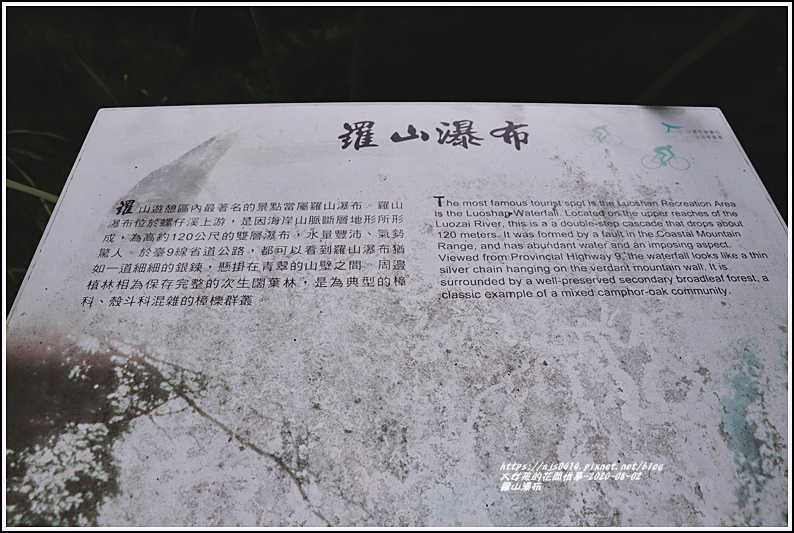 羅山瀑布
羅山遊憩區內最著名的景點當屬羅山瀑布。羅山
瀑布位於螺仔溪上游，是因海岸山脈斷層地形所形
成，為高約120公尺的雙層瀑布，水量豐沛、氣勢
驚人。於臺9線省道公路，都可以看到羅山瀑布猶
如一道細細的銀鍊，懸掛在青翠的山壁之間。周邊
植林相為保存完整的次生闊葉林，是為典型的樟
科、殼斗科混雜的樟櫟群叢。
The most famous tourist spot is the Luoshan Recreation Area
is the Luoshan Waterfall. Located on the upper reaches of the
Luozai River, this is a a double-step cascade that drops about
120 meters. It was formed by a fault in the Coastal Mountain
Range, and has abundant water and an imposing aspect.
Viewed from Provincial Highway 9, the waterfall looks like a thin
silver chain hanging on the verdant mountain wall. It is
surrounded by a well-preserved secondary broadleaf forest, a
classic example of a mixed camphor-oak community.
https://ajs0414.pixnet.net/blog
大台飛的花蓮情事-2020-08-02
羅山瀑布